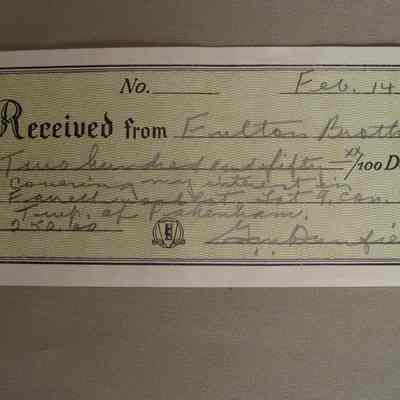 No. Feb. 14
Received from Fulton Broth
Two hundred and fifty xx/100 D
covering my interest in
Lot 9, Con.
Twp. of Pakenham.
250.00
Geo.